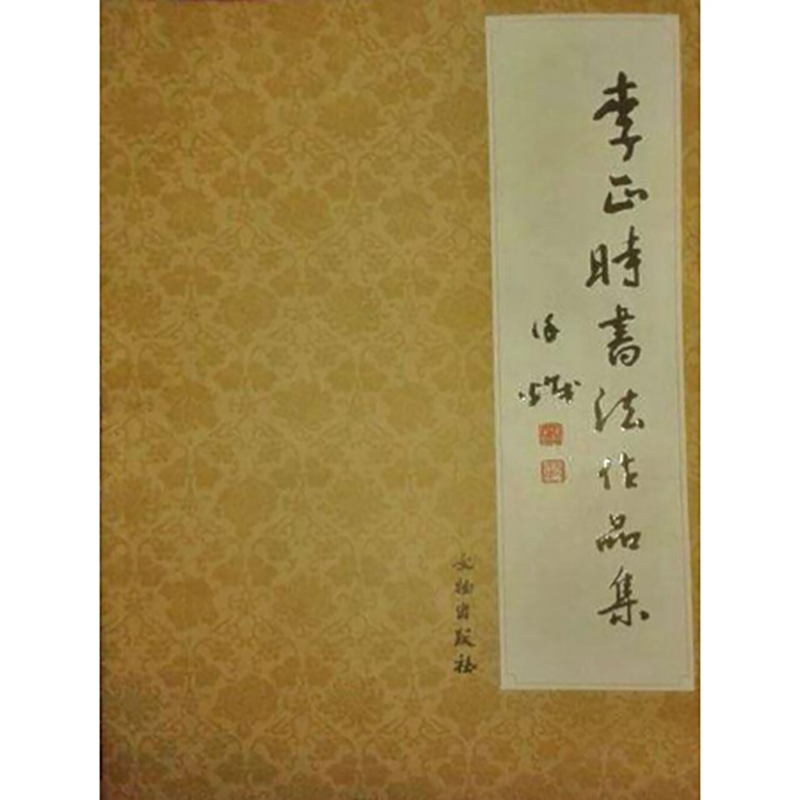 李正時書法作品集
文物出版社